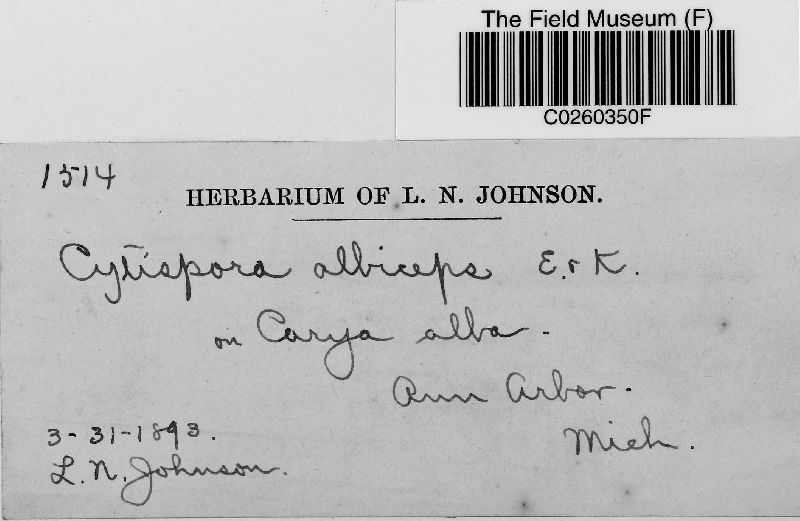 The Field Museum (F)
C0260350F
1514
HERBARIUM OF L. N. JOHNSON.
Cytispora albiceps E. & K.
on Carya alba -
Ann Arbor.
Mich.
3-31-1893.
L. N. Johnson.